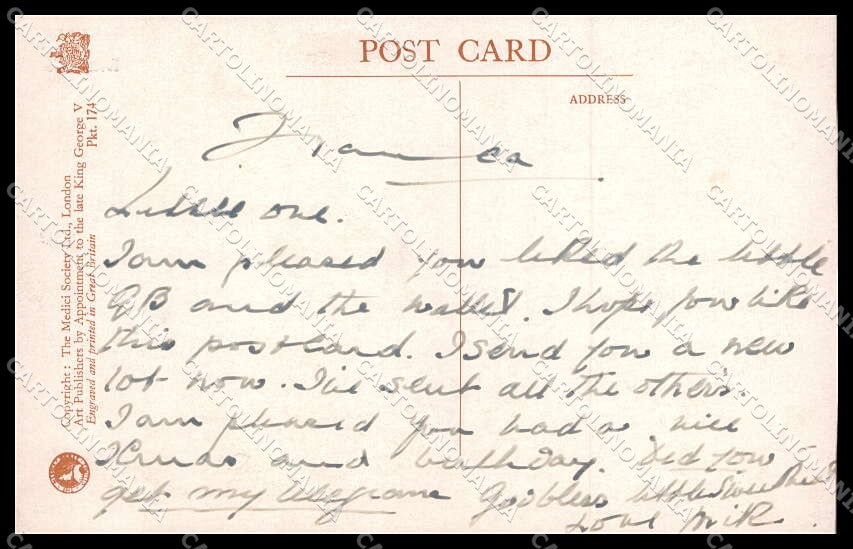 POST CARD
ADDRESS
Copyright: The Medici Society Ltd., London
Art Publishers by Appointment to the late King George V
Engraved and printed in Great Britain
Pkt. 174
Little one.
I am pleased you liked the little
GB and the wallet. I hope you like
this postcard. I send you a new
lot now. I've sent all the others.
I am pleased you had a nice
Xmas and birthday. Did you
get my telegram Godbless little sweetheart
Love Mik.
CARTOLINOMANIA